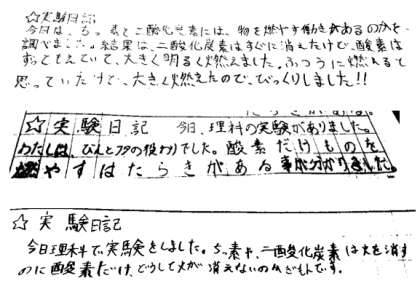 ☆実験日記
今日は、ちっ素と二酸化炭素には、物を燃やす働きがあるのかを
調べました。結果は、二酸化炭素はすぐに消えたけど、酸素は
ずっともえていて、大きく明るく燃えました。ふつうに燃えると
思っていたけど、大きく燃えたので、びっくりしました!!
☆実験日記 今日、理科の実験がありました。
わたしは、びんとフタの役わりでした。酸素だけものを
燃やすはたらきがある事が分かりました。
☆実験日記
今日理科で、実験をしました。ちっ素や、二酸化炭素は火を消す
のに酸素だけ、どうして火が消えないのかぎもんです。